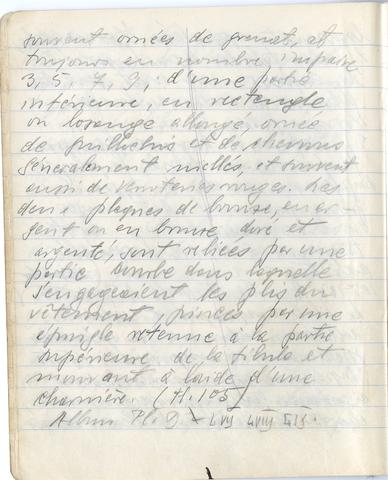 souvent ornées de grenats, et
toujours en nombre impaire
3, 5, 7, 9; d'une partie
inférieure, en rectangle
ou losange allongé, ornée
de guillochis et de chevrons
généralement niellés, et souvent
aussi de verroteries rouges. Les
deux plaques de bronze, en ar-
gent ou en bronze doré et
argenté, sont reliées par une
partie courbe dans laquelle
s'engageaient les plis du
vêtement, pincés par une
épingle retenue à la partie
supérieure de la fibule et
mouvant à l'aide d'une
charnière. (H. 105)
Album Pl. D - LVII LVIII LIX.